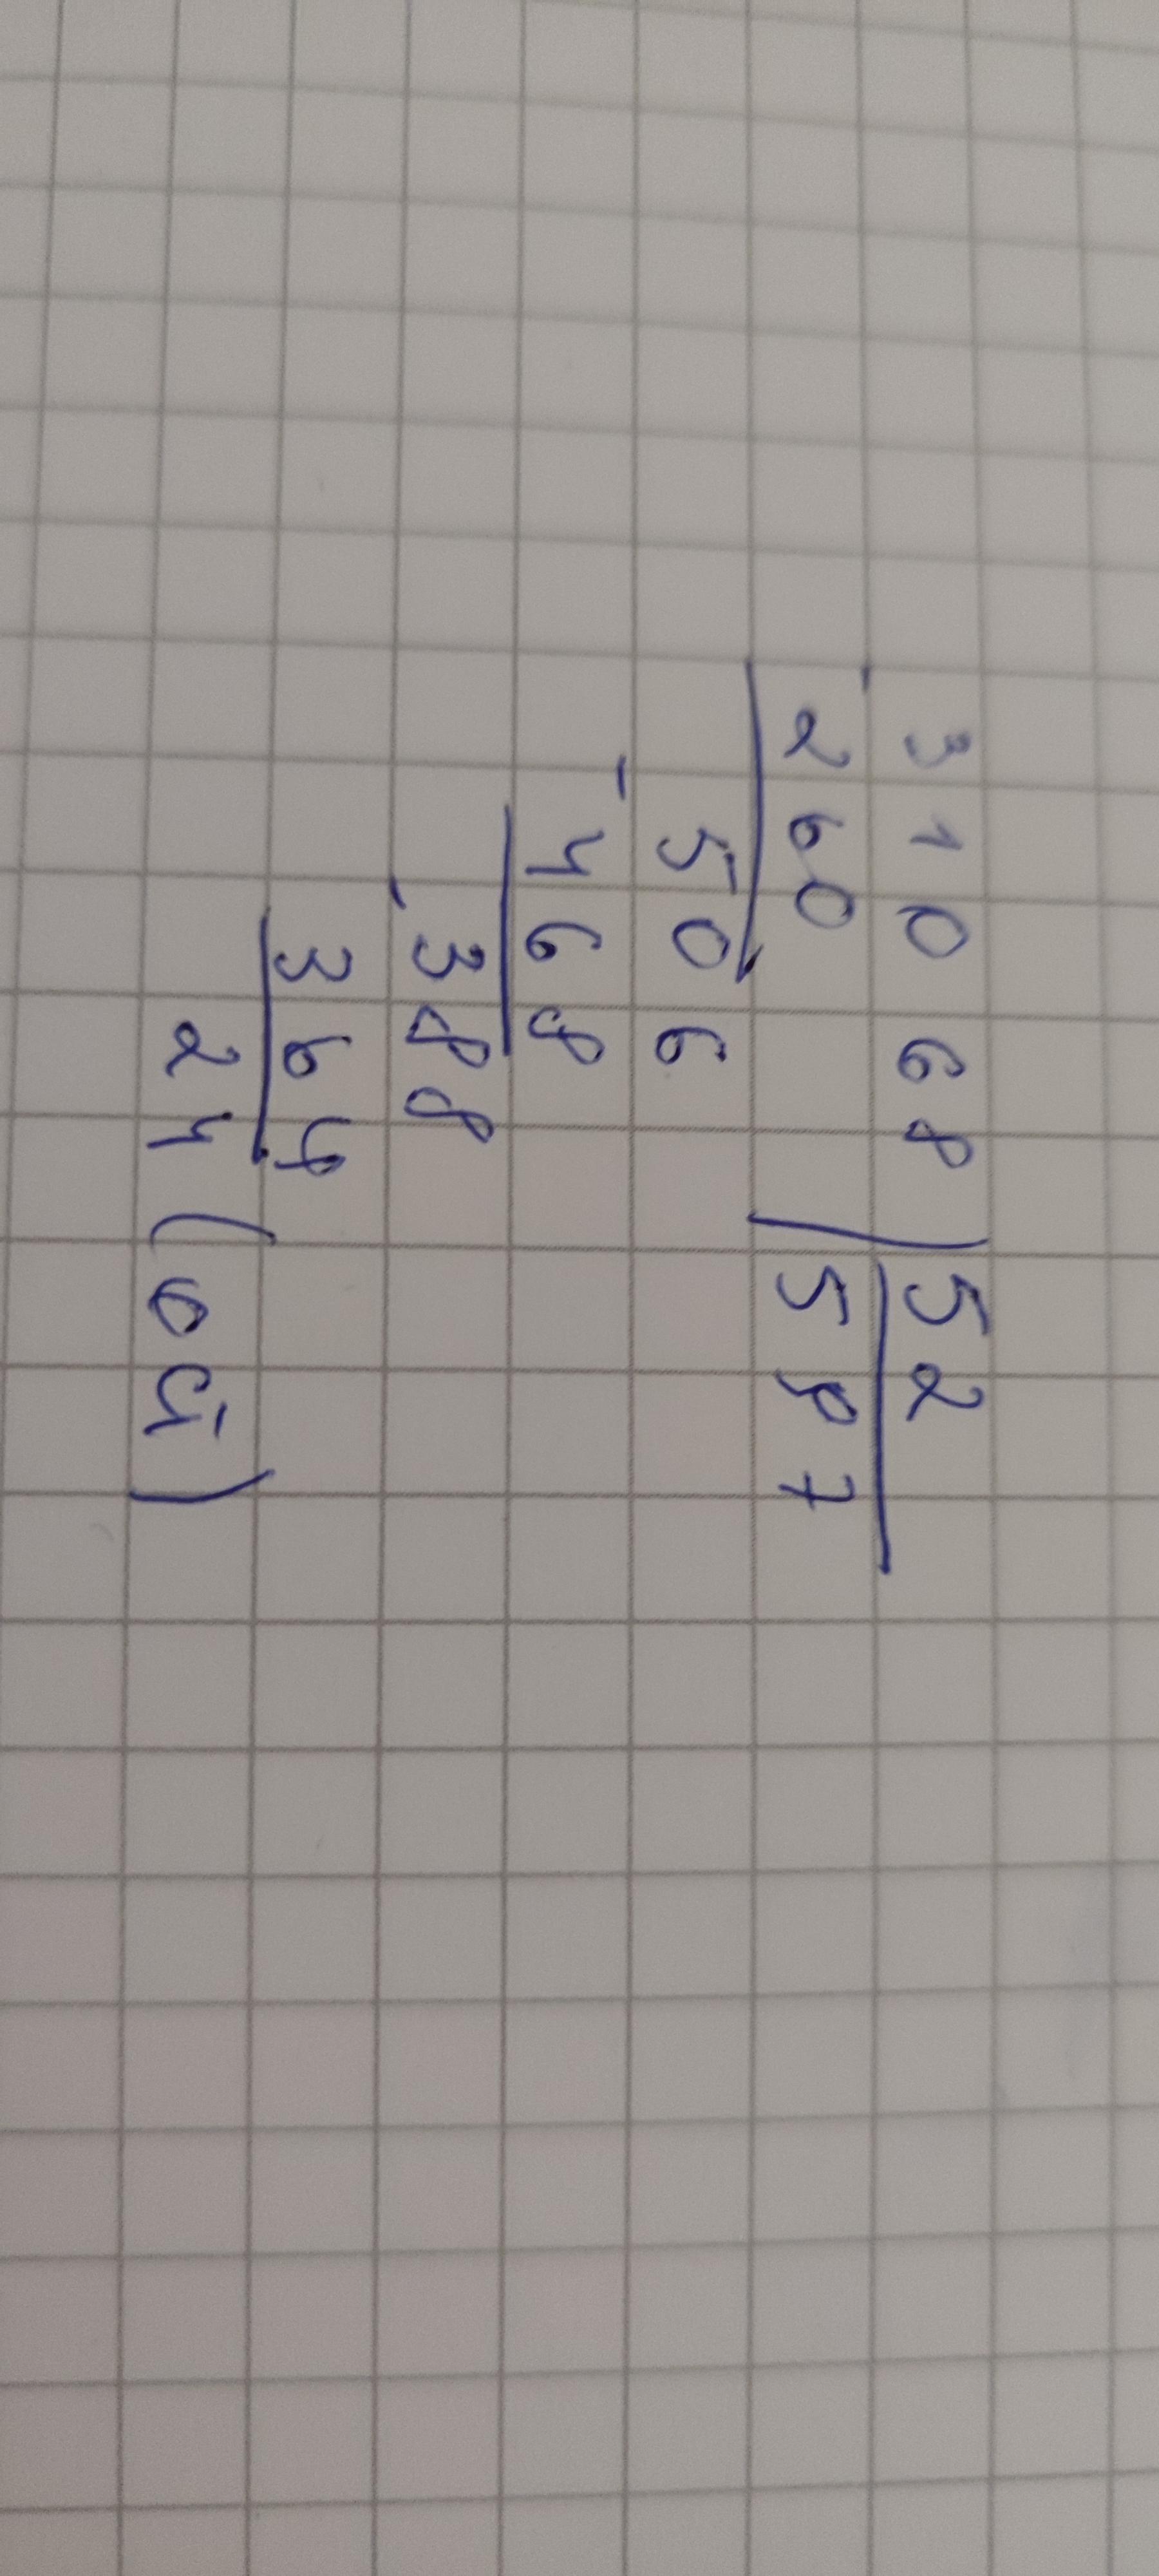 31068 52
260 597
506
- 468
388
- 364
24 (ост)